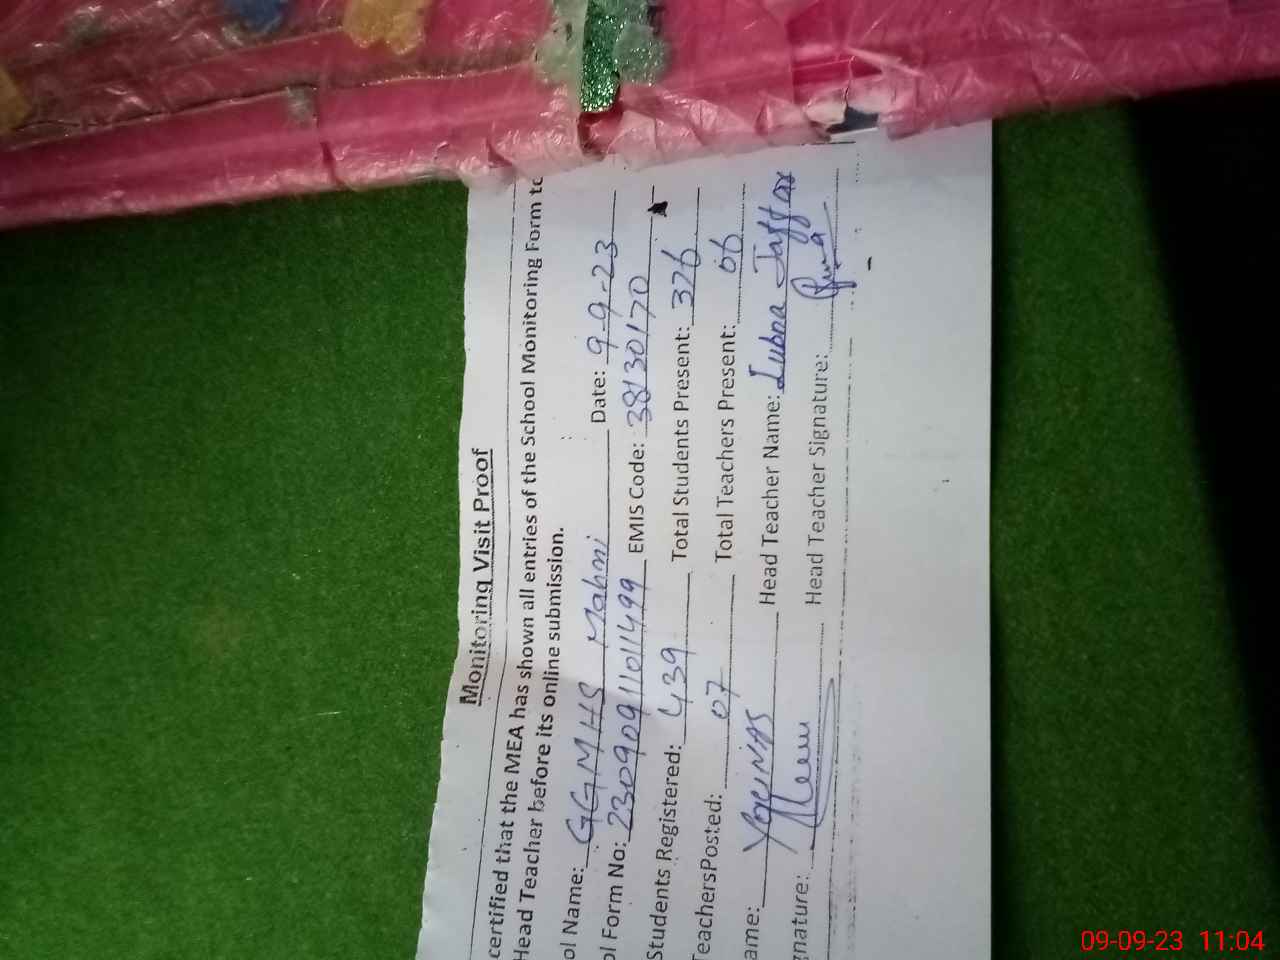 Monitoring Visit Proof
certified that the MEA has shown all entries of the School Monitoring Form to
Head Teacher before its online submission.
ol Name: GGMHS Mahni Date: 9-9-23
ol Form No: 23090911011499 EMIS Code: 38130170
Students Registered: 439 Total Students Present: 376
TeachersPosted: 07 Total Teachers Present: 06
ame: Head Teacher Name: Lubna Jaffar
gnature: Head Teacher Signature:
09-09-23 11:04